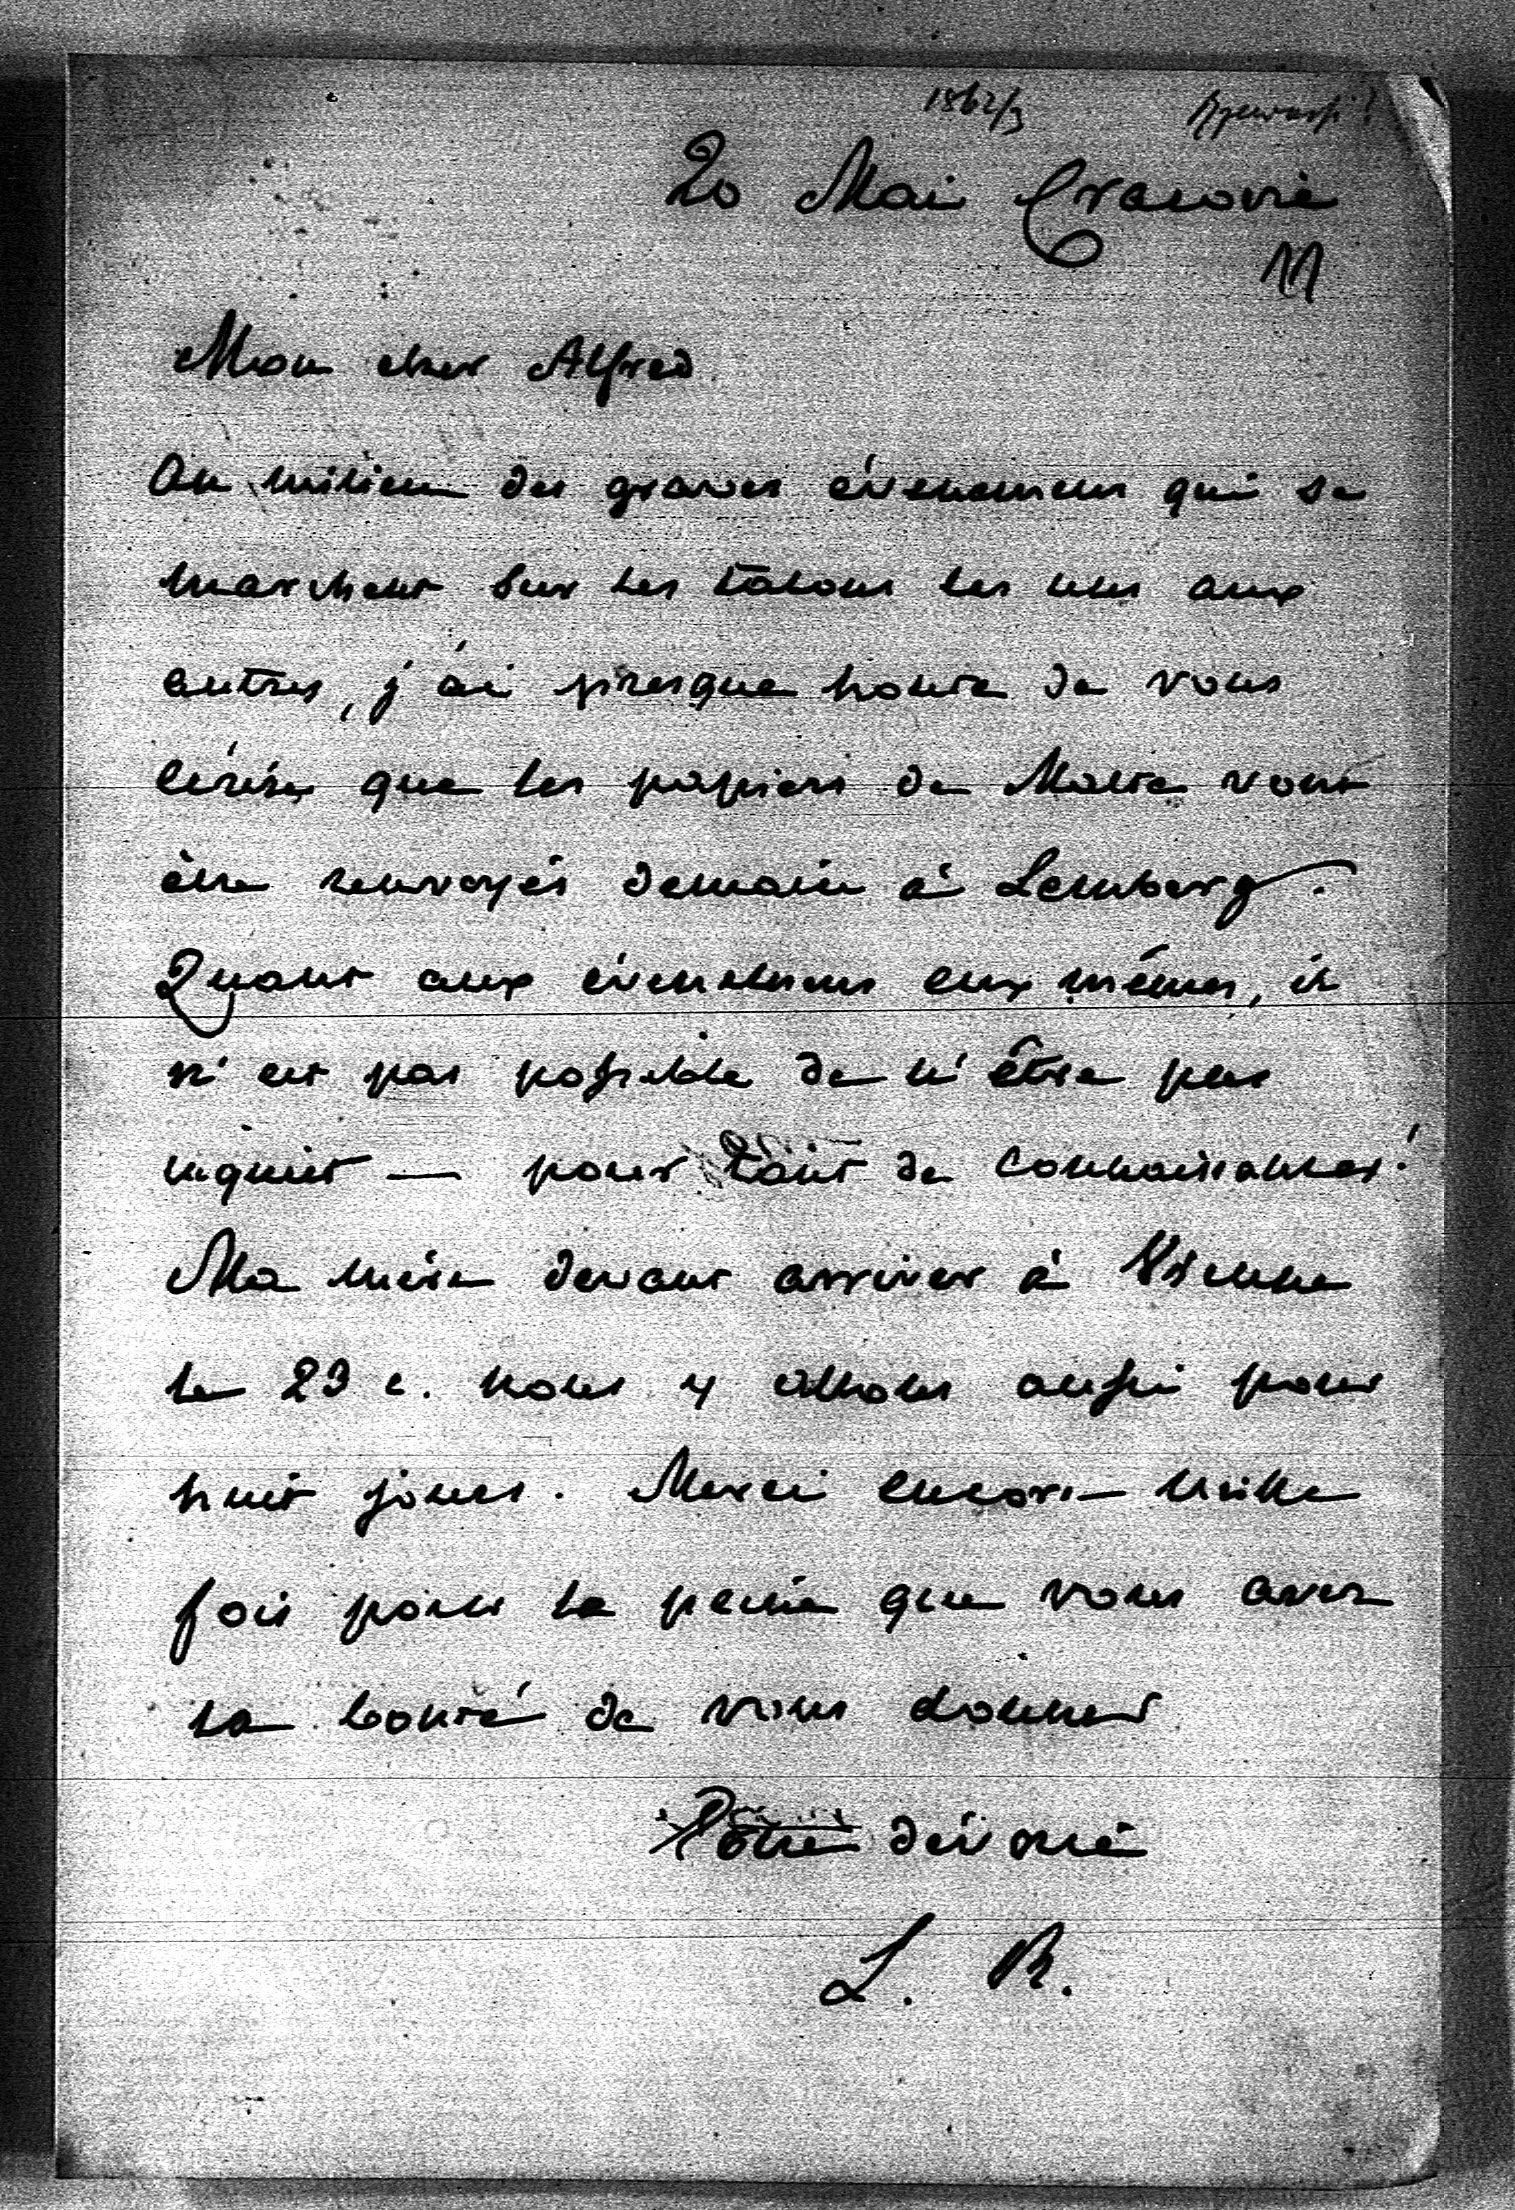 1862/3
20 Mai Cracovie
Mon cher Alfred
Au milieu des graves évenemens qui se
marchent sur les talons les uns aux
autres, j'ai presque honte de vous
écrire que les papiers de Malte vont
être renvoyés demain à Lemberg.
Quant aux évenemens eux mêmes, il
n'est pas possible de n'être pas
inquiet — pour tant de connaissances!
Ma mère devant arriver à Vienne
le 23 c. nous y allons aussi pour
huit jours. Merci encore mille
fois pour la peine que vous avez
la bonté de vous donner
Votre dévoué
L. R.